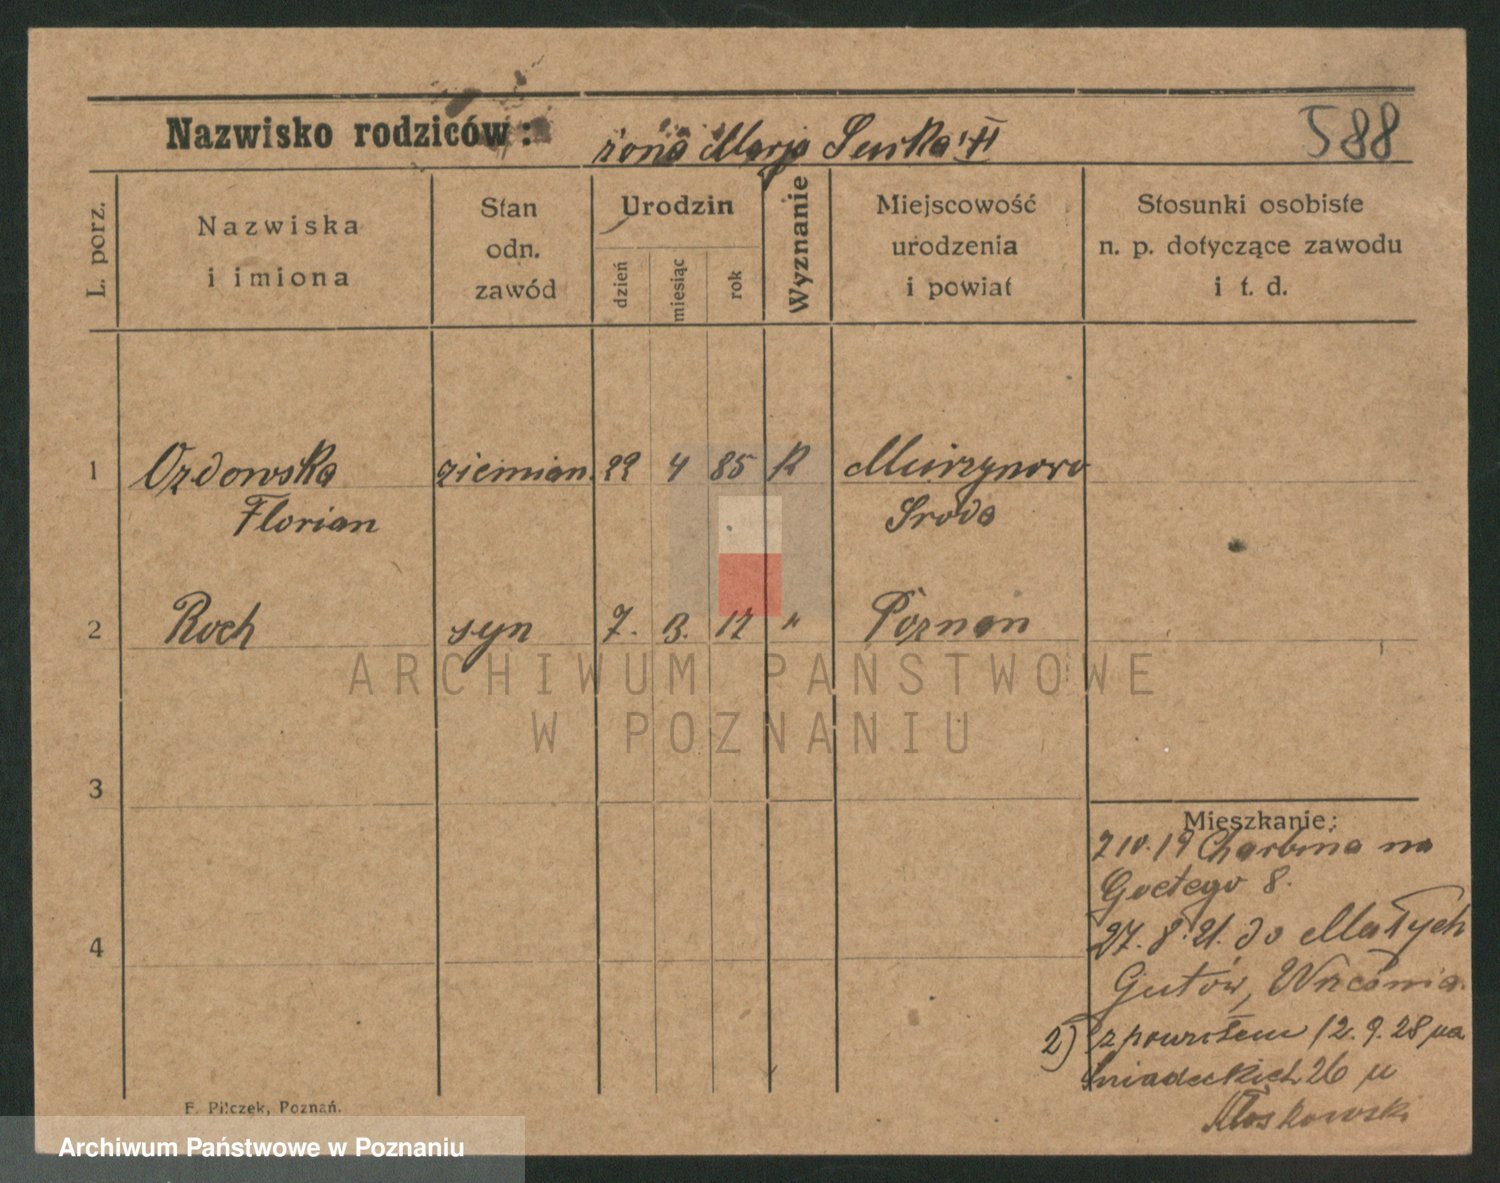 588
Nazwisko rodziców: żona Marja
L. porz.
Nazwiska i imiona
Stan odn. zawód
Urodzin
dzień
miesiąc
rok
Wyznanie
Miejscowość urodzenia i powiat
Stosunki osobiste n. p. dotyczące zawodu i t. d.
1 Ozdowska ziemian. 22 4 85 K
Florian Sroda
2 Roch syn 7. 12 " Poznan
3
4
Mieszkanie:
na
Goetego 8.
27. 8. 21. do Małych
Gutów,
2) z powrotem 12.9.28 na
Sniadeckich 26 u
F. Pilczek, Poznań.
ARCHIWUM PAŃSTWOWE
W POZNANIU
Archiwum Państwowe w Poznaniu